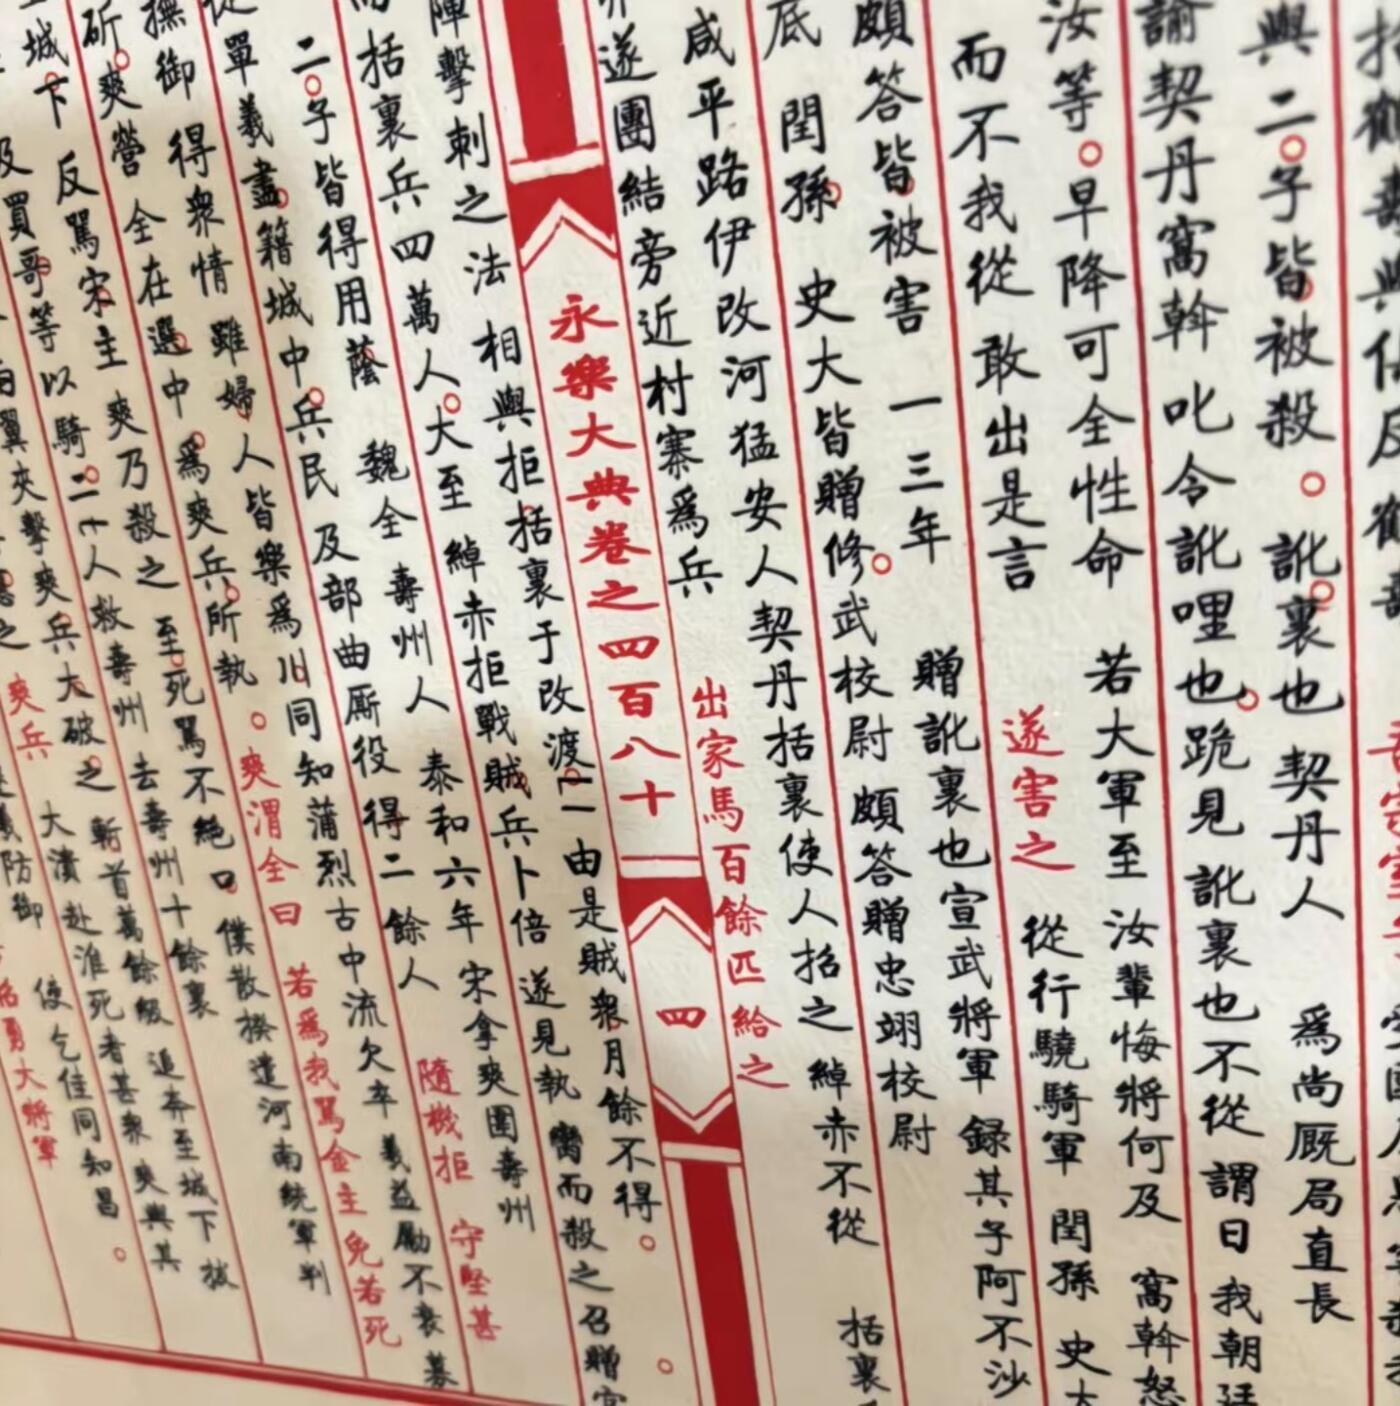 與二子皆被殺 訛裏也 契丹人 為尚厩局直長
諭契丹窩斡 叱令訛哩也跪見 訛裏也不從 謂日 我朝廷
汝等早降可全性命 若大軍至 汝輩悔將何及 窩斡怒
而不我從 敢出是言 遂害之 從行驍騎軍 閏孫 史大
頗答皆被害 一三年 贈訛裏也宣武將軍 録其子阿不沙
底 閏孫 史大皆贈修武校尉 頗答贈忠翊校尉
咸平路伊改河猛安人契丹括裏使人招之 綽赤不從 括裏
遂團結旁近村寨為兵 出家馬百餘匹給之
永樂大典卷之四百八十 四
陣擊刺之法 相與拒括裏于改渡口 由是賊衆月餘不得
而括裏兵四萬人大至 綽赤拒戰賊兵卜倍 遂見執 臠而殺之 召贈
二子皆得用蔭 魏全 壽州人 泰和六年 宋拿爽圍壽州
從單義盡籍城中兵民及部曲厮役得二餘人 隨機拒 守堅甚
撫御得衆情 雖婦人皆樂為川 同知蒲烈古中流欠卒 義益勵不衰 募
斫爽營 全在選中 為爽兵所執 爽渭全曰 若為我駡金主免若死
城下 反駡宋主 爽乃殺之 至死駡不絶口 僕散揆遣河南統軍判
及買哥等以騎二十人救壽州 去壽州十餘裏
翼夾擊爽兵大破之 斬首萬餘級 追奔至城下拔
爽兵 大潰赴淮死者甚衆 爽與其
防御 使乞住同知昌
勇大將軍